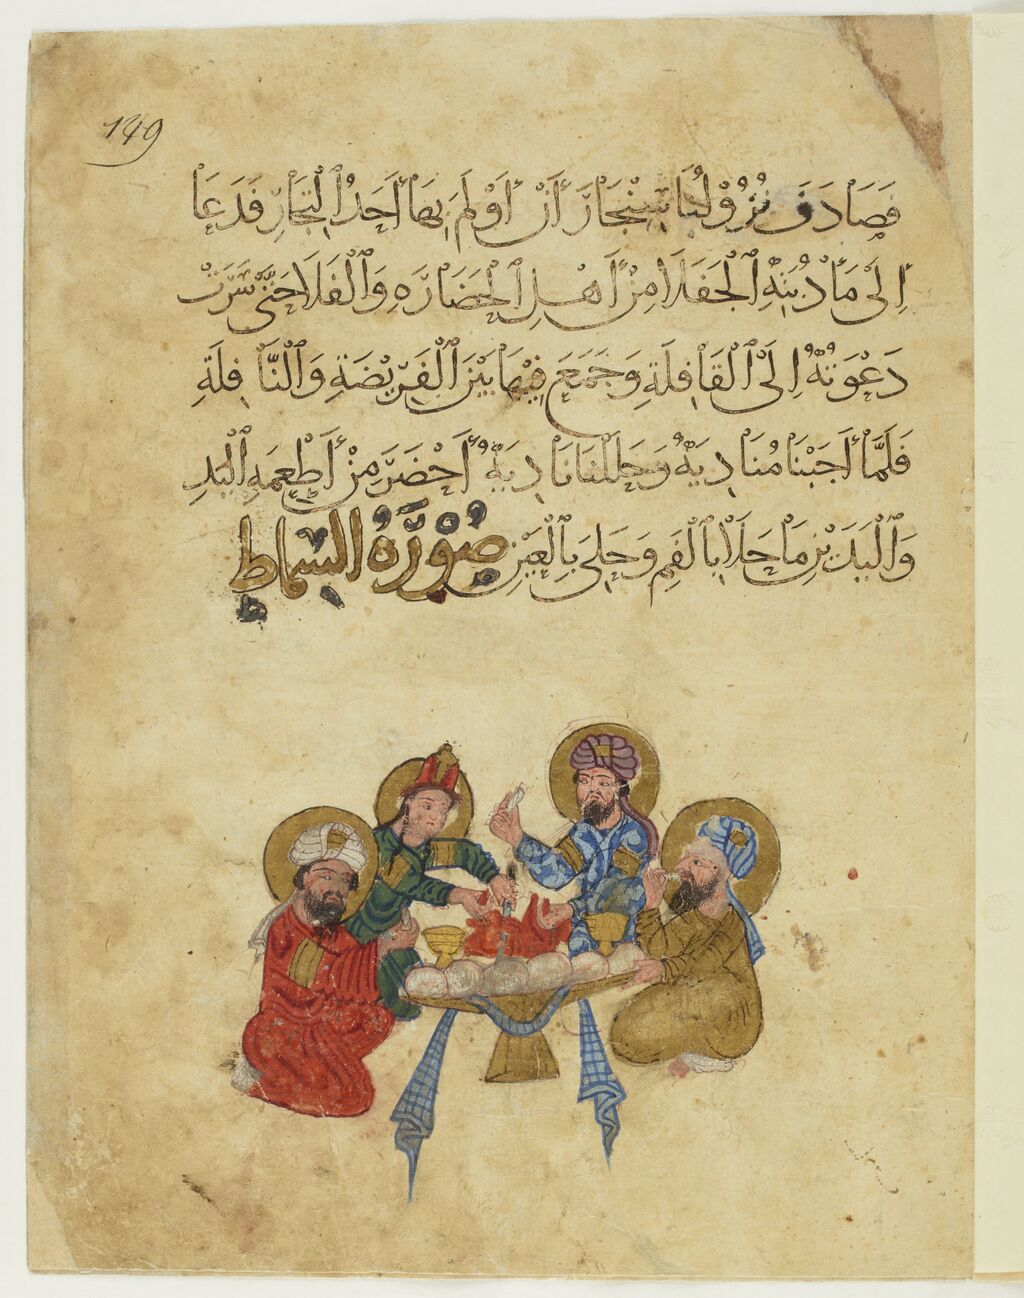 149
فَصَادَفَ نُزُوْلُنَا سِنْجَارَ أَنْ أَوْلَمَ بِهَا أَحَدُ التُجَّارِ فَدَعَا
اِلَى مَأْدُبَتِهِ الْجَفَلَا مِنْ أَهْلِ الْحَضَارَهِ وَالْفَلَا حَتَّى سَرَتْ
دَعْوَتُهُ اِلَى الْقَافِلَةِ وَجَمَعَ فِيْهَا بَيْنَ الْفَرِيْضَةِ وَالنَّافِلَةِ
فَلَمَّا أَجَبْنَا مُنَادِيَهُ وَحَلَلْنَا نَادِيَهُ أَحْضَرَ مِنْ أَطْعِمَهِ الْيَدِ
وَالْيَدَيْنِ مَا حَلَا بِالْفَمِ وَحَلِيَ بِالْعَيْنِ صُوْرَةُ السِماط